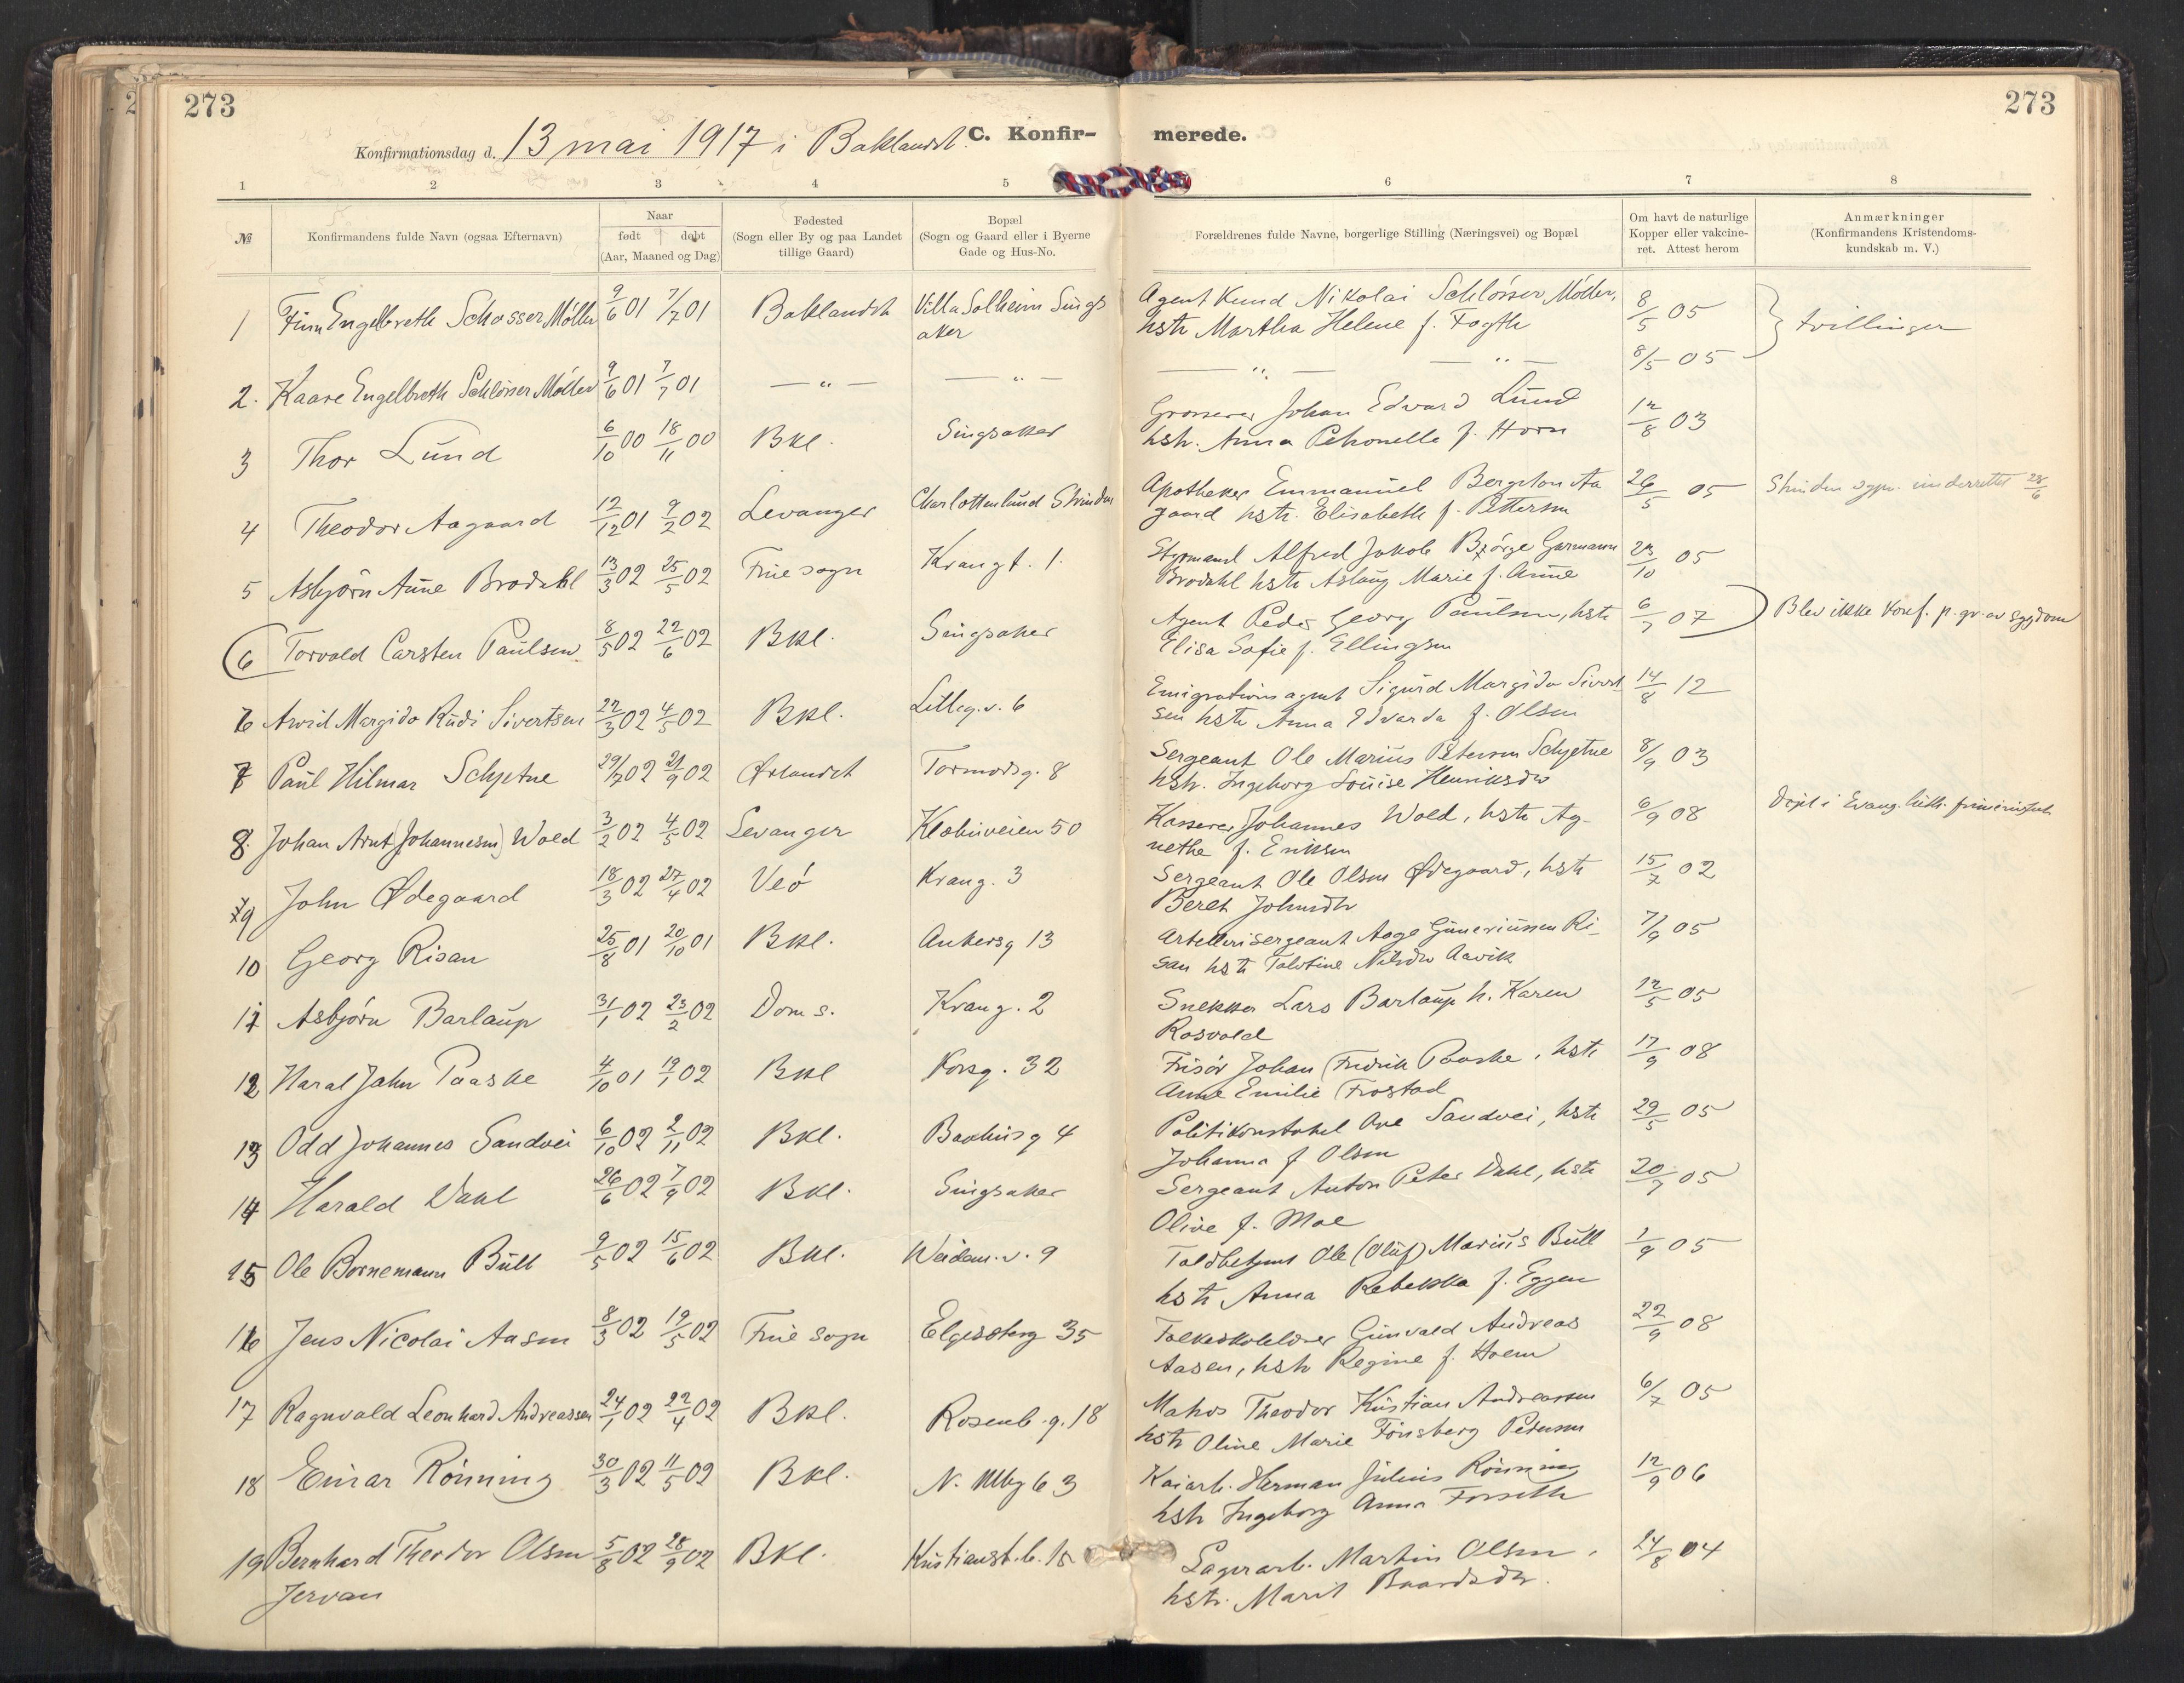 273
273
Konfirmationsdag d. 13 mai 1917 i Baklandet.
C. Konfir- merede.
1 2 3 4 5 6 7 8
№ Konfirmandens fulde Navn (ogsaa Efternavn) Naar født døbt (Aar, Maaned og Dag) Fødested (Sogn eller By og paa Landet tillige Gaard) Bopæl (Sogn og Gaard eller i Byerne Gade og Hus-No. Forældrenes fulde Navne, borgerlige Stilling (Næringsvei) og Bopæl Om havt de naturlige Kopper eller vakcineret. Attest herom Anmærkninger (Konfirmandens Kristendomskundskab m. V.)
1 Finn Engelbreth Schøsser Møller 9/6 01 7/7 01 Baklandet Villa Solheim Sings Agent Knud Nikolai Schlösser Møller, 8/5 05 tvillinger
aker hstr Martha Helene f. Fogth
2. Kaare Engelbreth Schlösser Møller 9/6 01 7/7 01 — " — — " — — " — — " — 8/5 05
3 Thor Lund 6/10 00 18/11 00 Bkl. Singsaker Grosserer Johan Edvard Lund 12/8 03
hstr. Anna Petronelle f. Horn
4 Theodor Aagaard 12/12 01 9/2 02 Levanger Charlottenlund Strinden Apotheker Emmanuel Bergeton Aa 26/5 05 Strinden sgpr. underrettet 28/6
gaard hstr. Elisabeth f. Pettersen
5 Asbjørn Aune Brodahl 13/3 02 25/5 02 Frue sogn Krangt. 1. Styrmand Alfred Jakob Bjørge Garmann 23/10 05
Brodahl hstr Aslaug Marie f. Aune
(6 Torvald Carsten Paulsen 8/5 02 22/6 02 Bkl. Singsaker Agent Peder Georg Paulsen, hstr 6/7 07) Blev ikke konf. p. gr. av sygdom
Elisa Sofie f. Ellingsen
6 Arvid Margido Rudi Sivertsen 22/3 02 4/5 02 Bkl. Lilleg.v. 6 Emigrationsagent Sigurd Margido Sivert 14/8 12
sen hstr Anna Edvarda f. Olsen
7 Paul Hilmar Schjetne 29/7 02 21/9 02 Ørlandet Tormodsg. 8 Sergeant Ole Marius Petersen Schjetne 8/9 03
hstr. Ingeborg Louise Henriksdtr
8. Johan Arnt (Johannesen) Wold 3/2 02 4/5 02 Levanger Klæbuveien 50 Kasserer Johannes Wold, hstr Ag- 6/9 08 Døpt i Evang. luth. frimenighet
nethe f. Eriksen
9 John Ødegaard 18/3 02 27/4 02 Veö Krang. 3 Sergeant Ole Olsen Ødegaard, hstr 15/7 02
Beret Johnsdtr
10 Georg Risan 25/8 01 20/10 01 Bkl. Ankersg 13 Artellerisergeant Aage Guneriussen Ri- 7/9 05
san hstr Nilsdtr Aavik
11 Asbjørn Barlaup 31/1 02 23/2 02 Dom s. Krang. 2 Snekker Lars Barlaup h. Karen 12/5 05
Rosvold
12 Haral Jahn Paaske 4/10 01 19/1 02 Bkl Korsg. 32 Frisör Johan Fredrik Paaske, hstr 17/9 08
Anne Emilie Frostad
13 Odd Johannes Sandvei 6/10 02 2/11 02 Bkl. Bakhusg 4 Politikonstabel Ove Sandvei, hstr 29/5 05
Johanna f Olsen
14 Harald Dahl 26/6 02 7/9 02 Bkl. Singsaker Sergeant Anton Peter Dahl, hstr 20/7 05
Olive f. Moe
15 Ole Bornemann Bull 9/5 02 15/6 02 Bkl. Weidem.v. 9 Toldbetjent Ole (Oluf) Marius Bull 1/9 05
hstr Anna Rebekka f. Eggen
16 Jens Nicolai Aasen 8/3 02 19/5 02 Frue sogn Elgesæterg 35 Folkeskolelærer Gunvald Andreas 22/9 08
Aasen, hstr Regine f. Hoem
17 Ragnvald Leonhard Andreassen 24/1 02 22/4 02 Bkl. Rosenb.g. 18 Matros Theodor Kristian Andreassen 6/7 05
hstr Oline Marie Tönsberg Petersen
18 Einar Rönning 30/3 02 11/5 02 Bkl. N. Mbg 63 Kaiarb. Herman Julius Rönning 12/9 06
hstr Ingeborg Anna Forseth
19 Bernhard Theodor Olsen 5/8 02 28/9 02 Bkl. Kristianst.b. 15 Lagerarb. Martin Olsen, 24/8 04
Jervan hstr. Marit Baardsdtr.